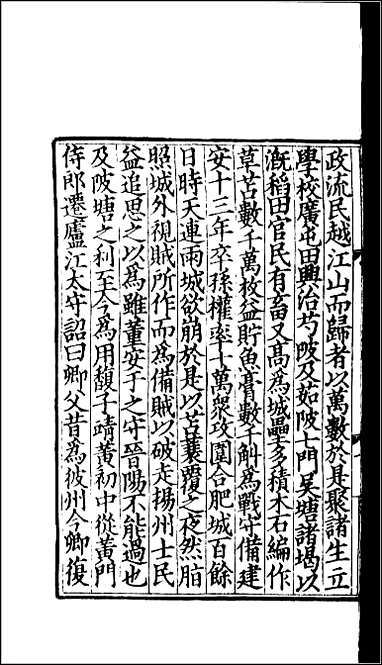 政流民越江山而歸者以萬數於是聚諸生立
學校廣屯田興治芍陂及茹陂七門吳塘諸堨以
溉稻田官民有畜又高為城壘多積木石編作
草苫數千萬枚益貯魚膏數千斛為戰守備建
安十三年卒孫權率十萬衆攻圍合肥城百餘
日時天連雨城欲崩於是以苫蓑覆之夜然脂
照城外視賊所作而為備賊以破走揚州士民
益追思之以為雖董安于之守晉陽不能過也
及陂塘之利至今為用馥子靖黃初中從黃門
侍郎遷廬江太守詔曰卿父昔為彼州今卿復